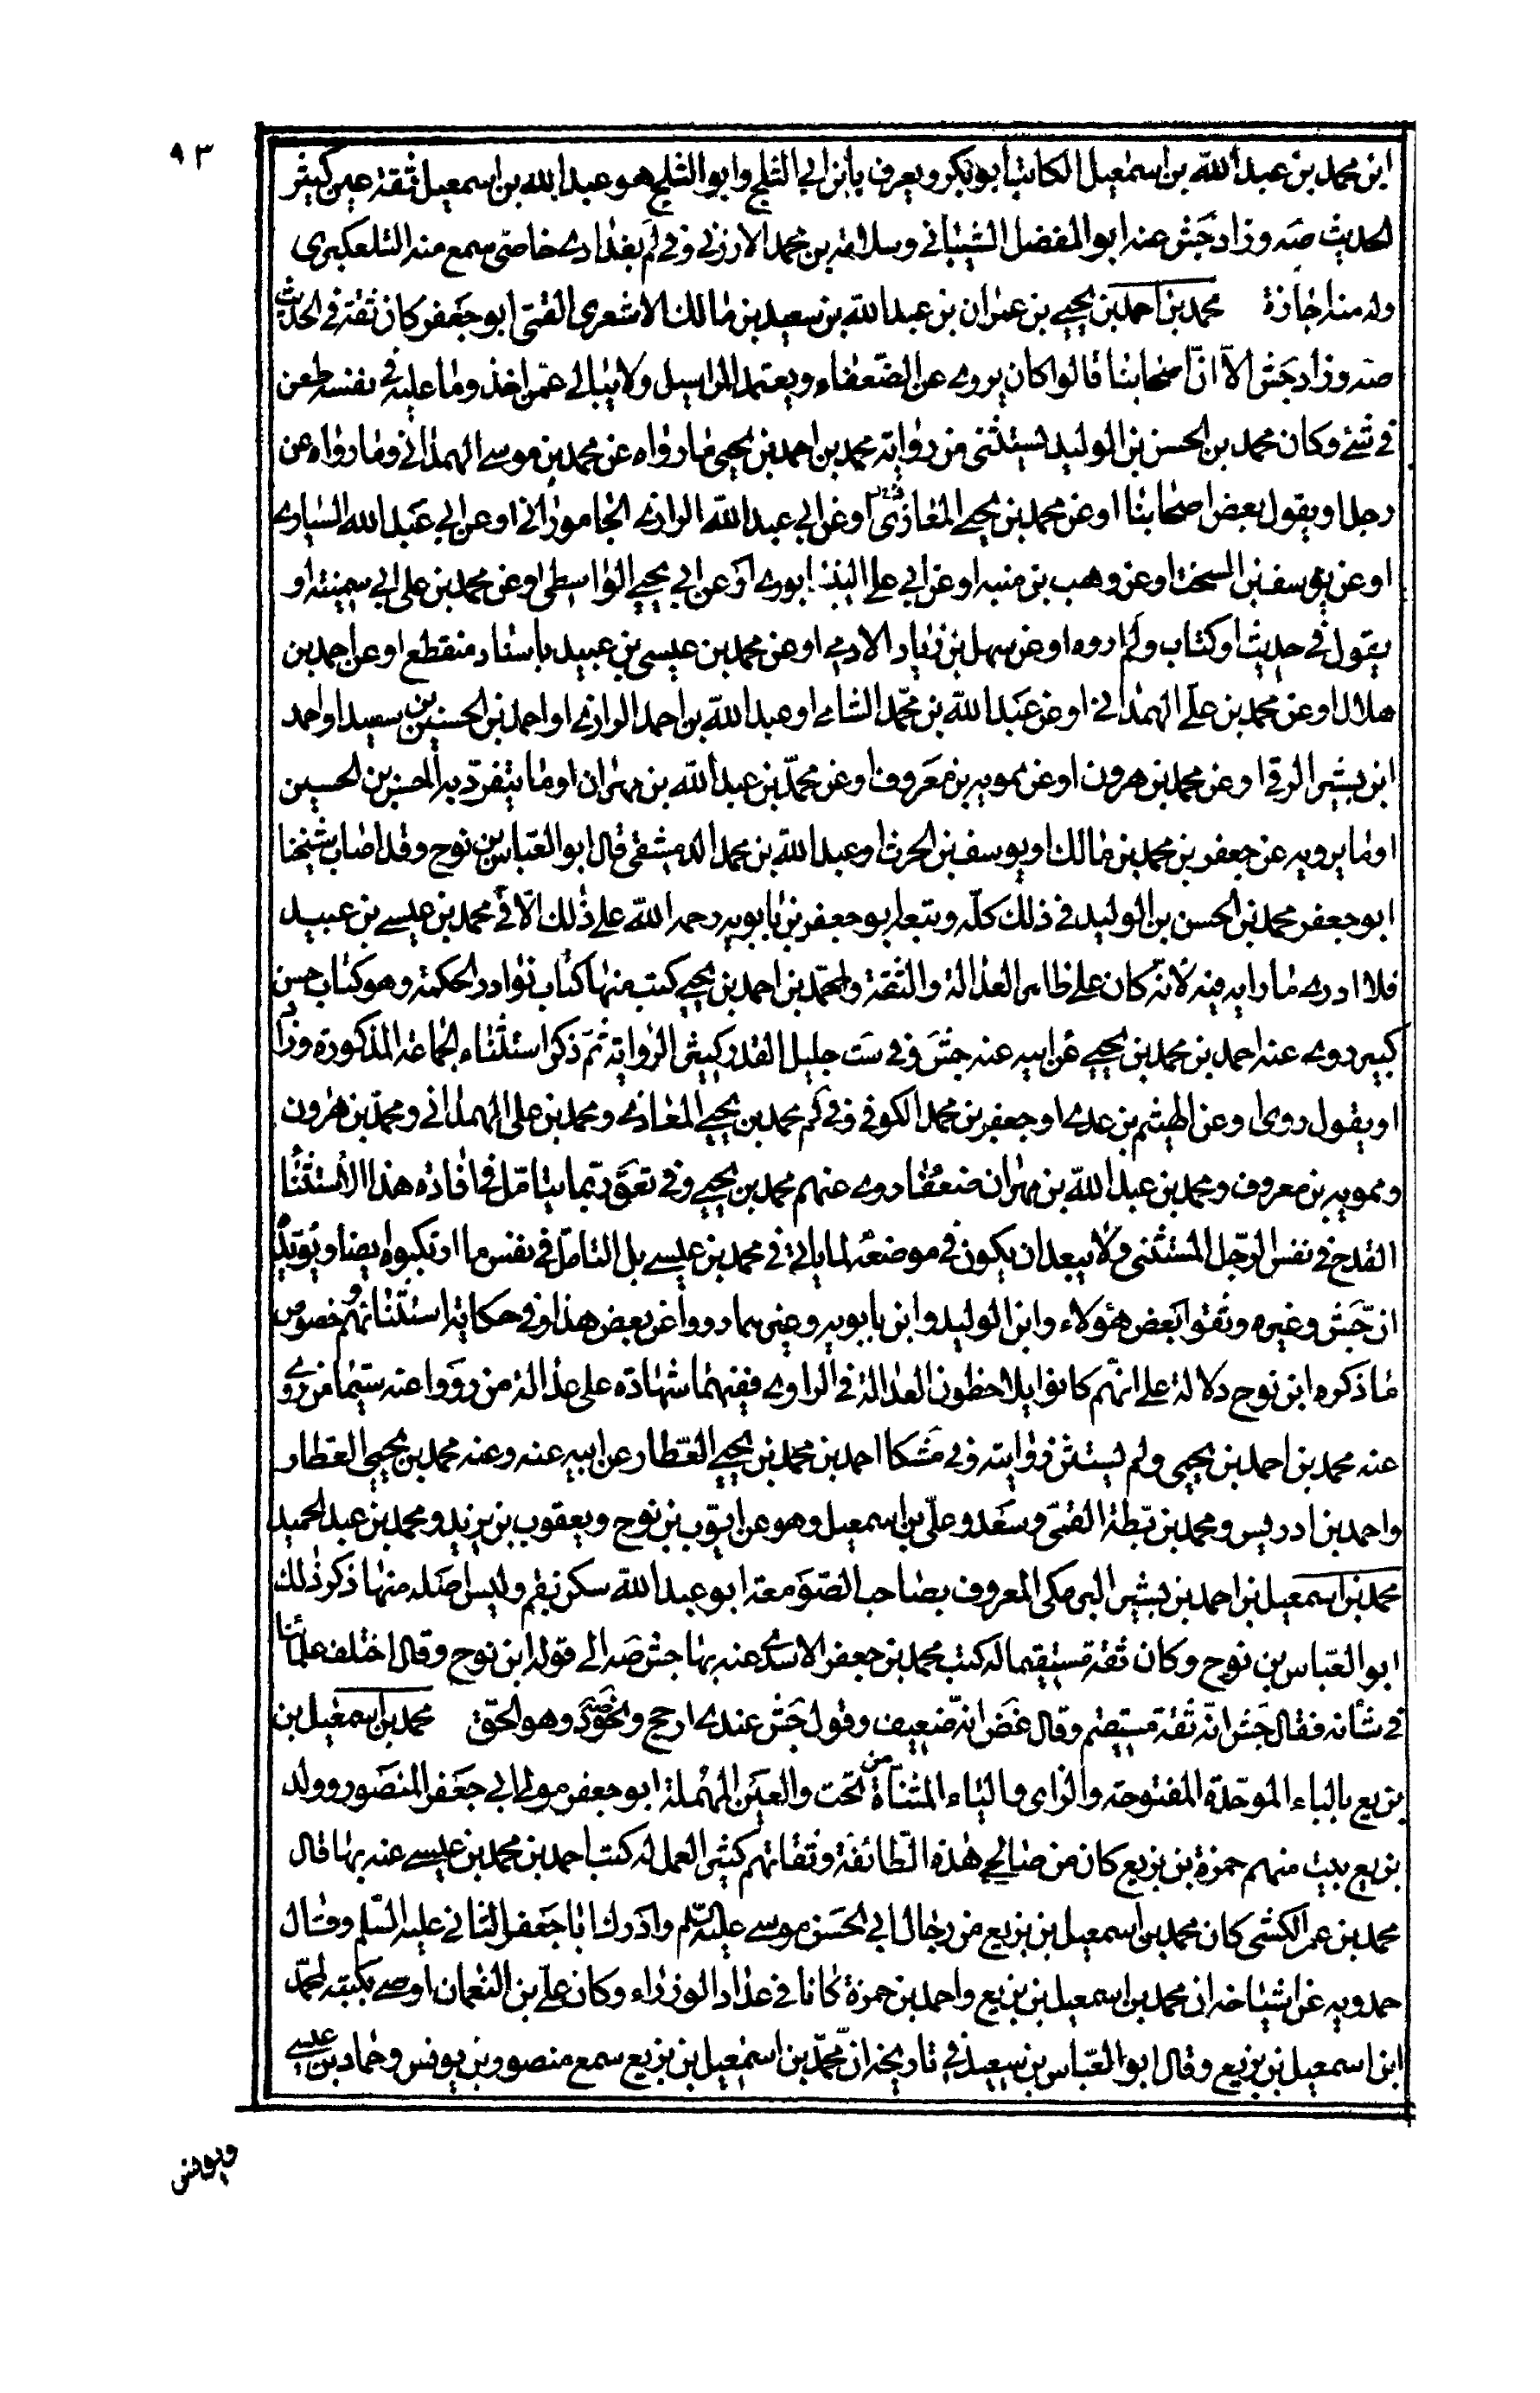 ٩٣
ابن محمد بن عبد الله بن اسمعيل الكاتب ابو بكر ويعرف بابن ابي الثلج وابو الثلج هو عبد الله بن اسمعيل ثقة عين كثير
الحديث صه وزاد جش عنه ابو المفضل الشيباني وسلامة بن محمد الارزني وفي لم بغدادي خاصى سمع منه التلعكبرى
وله منه اجازة محمد بن احمد بن يحيى بن عمران بن عبد الله بن سعيد بن مالك الاشعرى القمى ابو جعفر كان ثقة في الحديث
صه وزاد جش الا ان اصحابنا قالوا كان يروى عن الضعفاء ويعتمد المراسيل ولا يبالى عمن اخذ وما عليه في نفسه طعن
في شئ وكان محمد بن الحسن بن الوليد يستثنى من رواية محمد بن احمد بن يحيى ما رواه عن محمد بن موسى الهمداني وما رواه عن
رجل او يقول بعض اصحابنا او عن محمد بن يحيى المعاذى او عن ابى عبد الله الرازى الجامورانى او عن ابى عبد الله السيارى
او عن يوسف بن السخت او عن وهب بن منبه او عن ابي على النيشابورى او عن ابى يحيى الواسطى او عن محمد بن على ابى سمينة او
يقول في حديث او كتاب ولم اروه او عن سهل بن زياد الادمى او عن محمد بن عيسى بن عبيد باسناد منقطع او عن احمد بن
هلال او عن محمد بن على الهمدانى او عن عبد الله بن محمد الشامى او عبد الله بن احمد الرازى او احمد بن الحسين بن سعيد او احمد
ابن بشير الرقى او عن محمد بن هرون او عن ممويه بن معروف او عن محمد بن عبد الله بن مهران او ما يتفرد به الحسن بن الحسين
او ما يرويه عن جعفر بن محمد بن مالك او يوسف بن الحرث او عبد الله بن محمد الدمشقى قال ابو العباس بن نوح وقد اصاب شيخنا
ابو جعفر محمد بن الحسن بن الوليد في ذلك كله وتبعه ابو جعفر بن بابويه رحمه الله على ذلك الا في محمد بن عيسى بن عبيد
فلا ادرى ما رابه فيه لانه كان على ظاهر العدالة والثقة ولمحمد بن احمد بن يحيى كتب منها كتاب نوادر الحكمة وهو كتاب حسن
كبير روى عنه احمد بن محمد بن يحيى عن ابيه عنه جش وفي ست جليل القدر كثير الرواية ثم ذكر استثناء الجماعة المذكورة وزاد
او يقول روى او عن الهيثم بن عدى او جعفر بن محمد الكوفى وفي لم محمد بن يحيى المعاذى ومحمد بن على الهمدانى ومحمد بن هرون
وممويه بن معروف ومحمد بن عبد الله بن مهران ضعفاء روى عنهم محمد بن يحيى وفي تعق ربما يتامل في افادة هذا الاستثناء
القدح في نفس الرجل المستثنى ولا يبعد ان يكون في موضعه لما ياتى في محمد بن عيسى بل التامل في نفس ما ارتكبوه ايضا ويؤيده
ان جش وغيره وثقوا بعض هؤلاء وابن الوليد وابن بابويه وغيرهما رووا عن بعض هذا وفي حكاية استثنائهم وخصوص
ما ذكره ابن نوح دلالة على انهم كانوا يلاحظون العدالة في الراوى ففيهما شهادة على عدالة من رووا عنه سيما من روى
عنه محمد بن احمد بن يحيى ولم يستثن روايته وفي مشكا احمد بن محمد بن يحيى العطار عن ابيه عنه وعنه محمد بن يحيى العطار
واحمد بن ادريس ومحمد بن بطة القمى وسعد وعلى بن اسمعيل وهو عن ايوب بن نوح ويعقوب بن يزيد ومحمد بن عبد الحميد
محمد بن اسمعيل بن احمد بن بشير البرمكى المعروف بصاحب الصومعة ابو عبد الله سكن بقم وليس اصله منها ذكر ذلك
ابو العباس بن نوح وكان ثقة مستقيما له كتب محمد بن جعفر الاسدى عنه بها جش صه الى قوله ابن نوح وقال اختلف علمائنا
في شأنه فقال جش انه ثقة مستقيم وقال غض انه ضعيف وقول جش عندى ارجح وهو الحق محمد بن اسمعيل بن
بزيع بالباء الموحدة المفتوحة والزاى والياء المثناة من تحت والعين المهملة ابو جعفر مولى ابى جعفر المنصور وولد
بزيع بيت منهم حمزة بن بزيع كان من صالحى هذه الطائفة وثقاتهم كثير العمل له كتب احمد بن محمد بن عيسى عنه بها قال
محمد بن عمر الكشى كان محمد بن اسمعيل بن بزيع من رجال ابى الحسن موسى عليه السلم وادرك ابا جعفر الثانى عليه السلم وقال
حمدويه عن اشياخه ان محمد بن اسمعيل بن بزيع واحمد بن حمزة كانا في عداد الوزراء وكان على بن النعمان اوصى بكتبه لمحمد
ابن اسمعيل بن بزيع وقال ابو العباس بن سعيد في تاريخه ان محمد بن اسمعيل بن بزيع سمع منصور بن يونس وحماد بن عيسى
ويونس